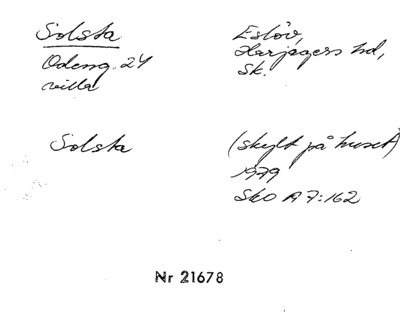 Solsta
Eslöv,
Odeng. 24
Harjagers hd,
villa
Sk.
Solsta
(skylt på huset)
1979
Sko A7:162
Nr 21678